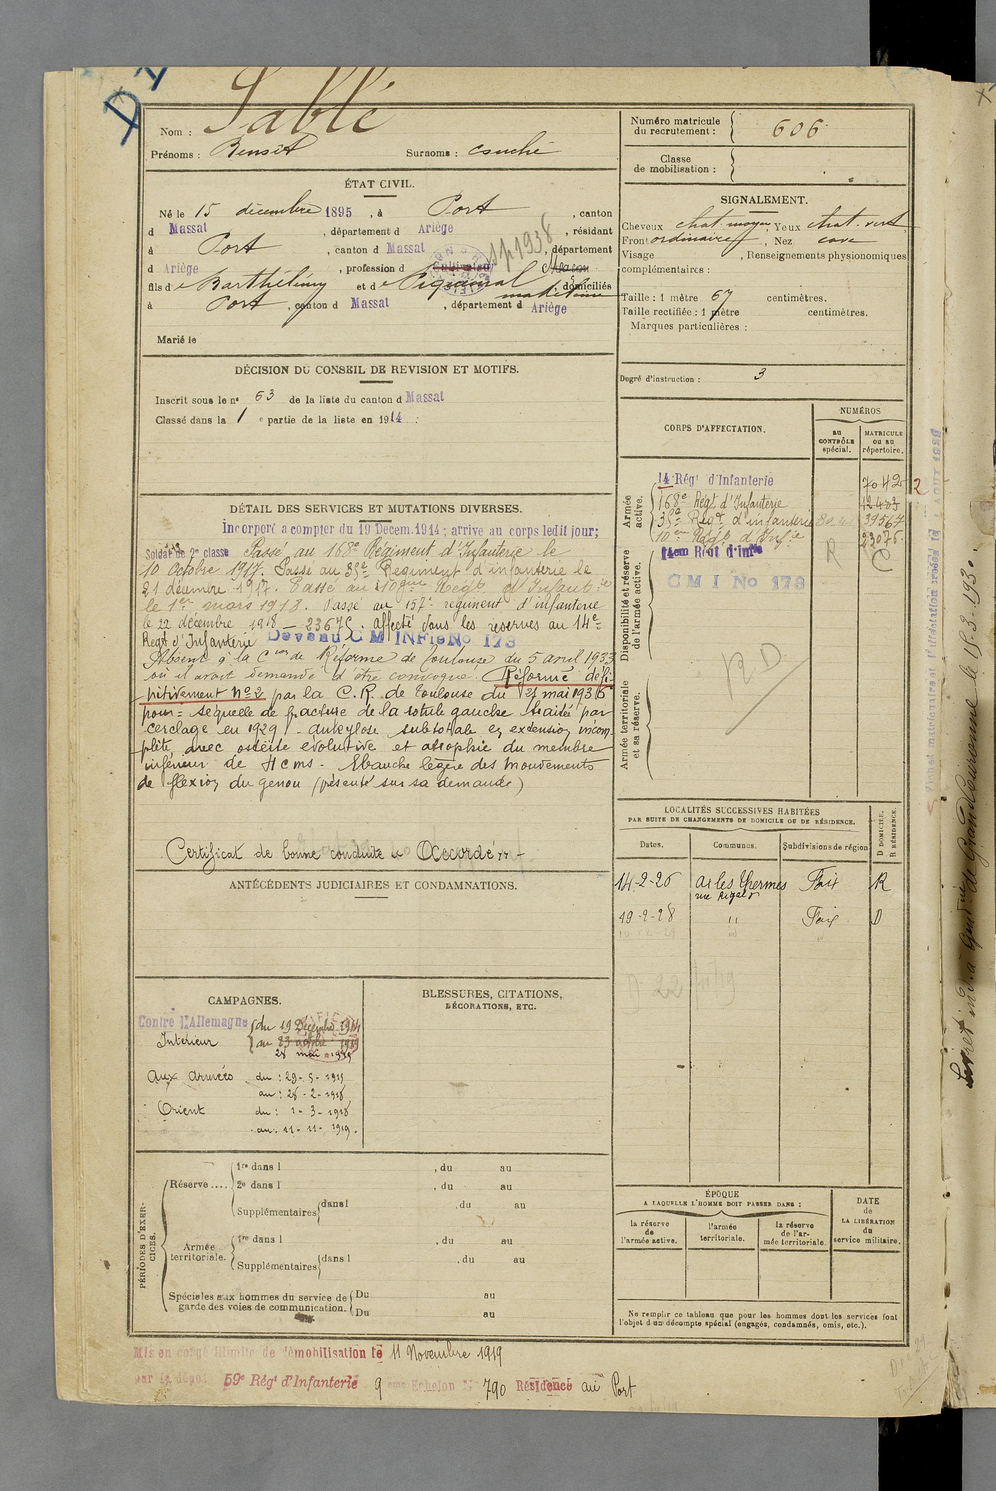 Nom : Sablé
Prénoms : Benoit Surnoms : couché
Numéro matricule du recrutement : 606
Classe de mobilisation :
ÉTAT CIVIL.
Né le 15 décembre 1895, à Port, canton
d Massat, département d Ariège, résidant
à Port, canton d Massat, département
d Ariège, profession d Cultivateur Maçon
sp 1938
fils de Barthélémy et de Piquemal Madeleine, domiciliés
à Port, canton d Massat, département d Ariège
Marié le
SIGNALEMENT.
Cheveux chat. moyen, Yeux chat. vert
Front ordinaire, Nez cave
Visage , Renseignements physionomiques
complémentaires :
Taille : 1 mètre 67 centimètres.
Taille rectifiée : 1 mètre centimètres.
Marques particulières :
Degré d'instruction : 3
DÉCISION DU CONSEIL DE REVISION ET MOTIFS.
Inscrit sous le nº 63 de la liste du canton d Massat
Classé dans la 1 e partie de la liste en 1914 :
CORPS D'AFFECTATION.
NUMÉROS
au CONTRÔLE spécial.
MATRICULE ou au répertoire.
Armée active.
14 Régt d'Infanterie 7042
168e Régt d'Infanterie 12403
35e Régt d'infanterie 39567
10e Régt d'Infie 23076
Disponibilité et réserve de l'armée active.
14em Regt d'Infie R C
C M I No 173
RD
Armée territoriale et sa réserve.
DÉTAIL DES SERVICES ET MUTATIONS DIVERSES.
Incorporé a compter du 19 Décem. 1914; arrive au corps ledit jour;
Soldat de 2e classe Passé au 168e Régiment d'Infanterie le
10 Octobre 1917. Passé au 35e Régiment d'infanterie le
21 décembre 1917. Passé au 10ème Régt d'Infantie
le 1er mars 1918. Passé au 157e régiment d'infanterie
le 22 décembre 1918 - 23675. affecté dans les réserves au 14e
Regt d'Infanterie Devenu C M INFie No 173
Absent à la Cion de Réforme de Toulouse du 5 avril 1933
où il avait demandé d'être convoqué. Réformé défi-
nitivement nº 2 par la C.R. de Toulouse du 28 mai 1935
pour = séquelle de fracture de la rotule gauche traitée par
cerclage en 1929 - ankylose subtotale en extension incom
plète avec ostéite évolutive et atrophie du membre
inférieur de 4 cms. Ebauche légère des mouvements
de flexion du genou (présenté sur sa demande)
Certificat de bonne conduite "Accordé"
LOCALITÉS SUCCESSIVES HABITÉES
PAR SUITE DE CHANGEMENTS DE DOMICILE OU DE RÉSIDENCE.
Dates. Communes. Subdivisions de région D DOMICILE. R RÉSIDENCE.
14-2-26 Ax les Thermes Foix R
rue Rigal
19-2-28 " Foix D
ANTÉCÉDENTS JUDICIAIRES ET CONDAMNATIONS.
CAMPAGNES.
Contre l'Allemagne du 19 Décembre 1914
Intérieur au 23 octobre 1919
28 mai 1915
Aux armées du : 29-5-1915
au : 28-2-1918
Orient du : 1-3-1918
au : 11-11-1919.
BLESSURES, CITATIONS,
DÉCORATIONS, ETC.
PÉRIODES D'EXERCICES.
Réserve .... 1re dans l , du au
2e dans l , du au
Supplémentaires dans l , du au
Armée territoriale. 1re dans l , du au
Supplémentaires dans l , du au
Spéciales aux hommes du service de garde des voies de communication. Du au
Du au
ÉPOQUE
A LAQUELLE L'HOMME DOIT PASSER DANS :
la réserve de l'armée active.
l'armée territoriale.
la réserve de l'armée territoriale.
DATE de LA LIBÉRATION du service militaire.
Ne remplir ce tableau que pour les hommes dont les services font
l'objet d'un décompte spécial (engagés, condamnés, omis, etc.).
Mis en congé illimité de démobilisation le 11 Novembre 1919
par le dépôt 59e Régt d'Infanterie 9 eme Echelon Nº 790 Résidence au Port